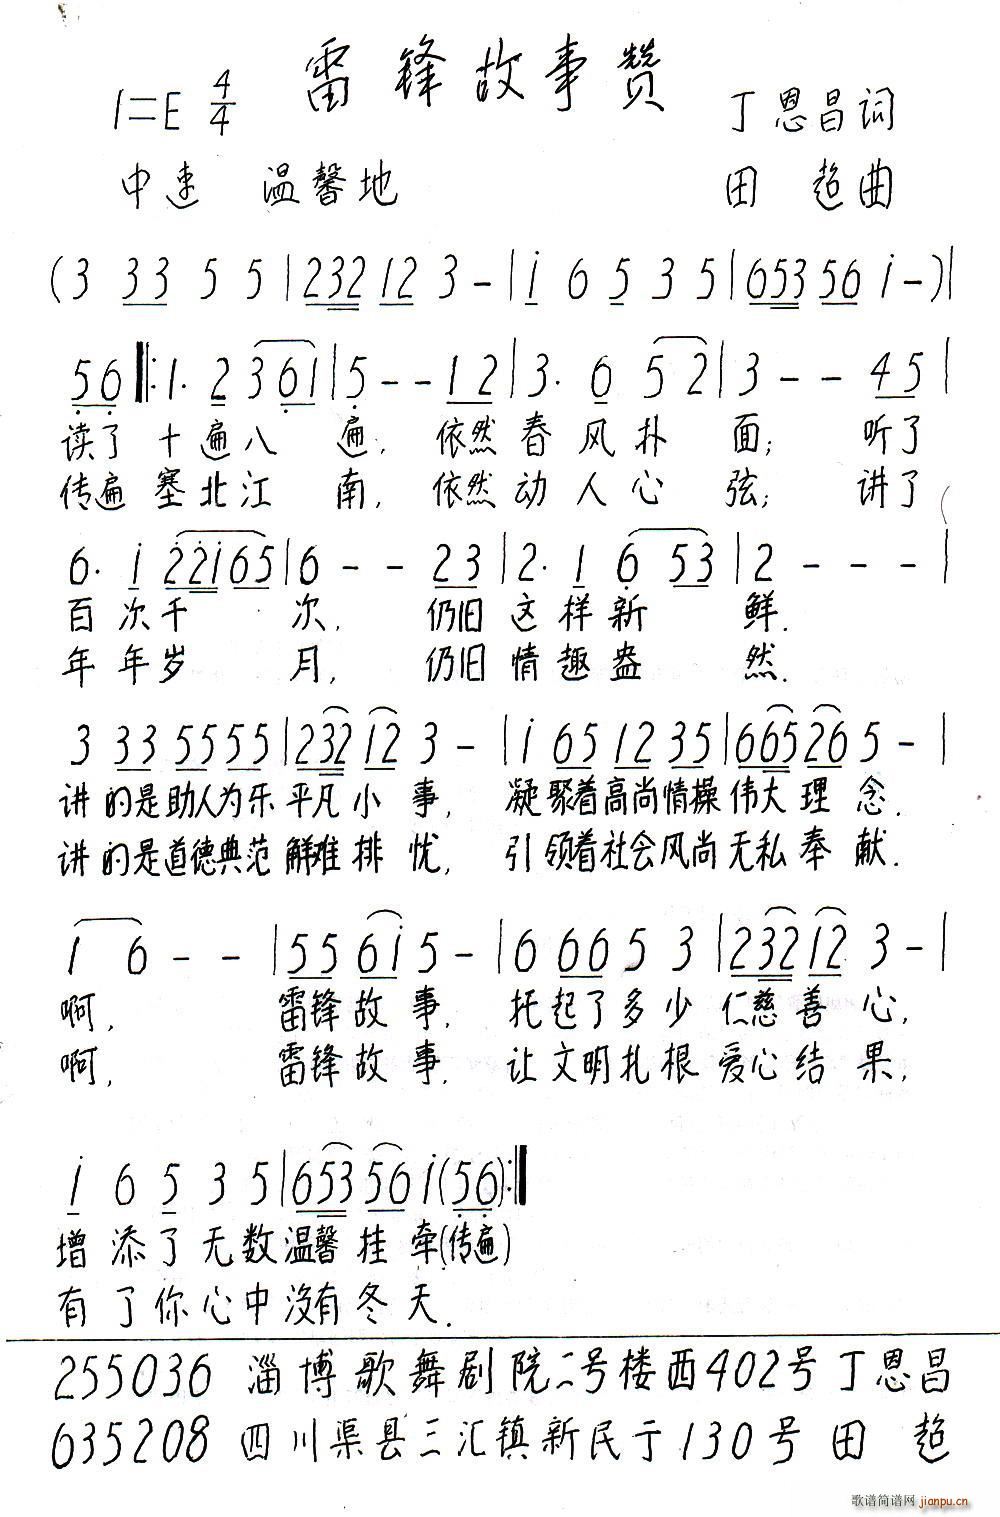 雷锋故事赞
1=E 4/4 丁恩昌词
中速 温馨地 田 超曲
(3 33 5 5|232 12 3 -|i 6 5 3 5|653 56 i -)|
56‖:1. 2 3 61|5 - - 12|3. 6 5 2|3 - - 45|
读了 十遍八 遍, 依然 春风扑 面; 听了
传遍 塞北江 南, 依然 动人心 弦; 讲了
6. i 22i65|6 - - 23|2. 1 6 53|2 - - -|
百次千 次, 仍旧 这样新 鲜.
年年岁 月, 仍旧 情趣盎 然.
3 33 55 55|232 12 3 -|i 65 12 35|665 26 5 -|
讲的是助人为乐平凡小事, 凝聚着高尚情操伟大理念.
讲的是道德典范解难排忧, 引领着社会风尚无私奉献.
1 6 - -|55 6i 5 -|6 66 5 3|232 12 3 -|
啊, 雷锋故事, 托起了多少仁慈善心,
啊, 雷锋故事. 让文明扎根爱心结果,
i 6 5 3 5|653 56 i (56):‖
增添了无数温馨挂牵(传遍)
有了你心中没有冬天.
255036 淄博歌舞剧院二号楼西402号丁恩昌
635208 四川渠县三汇镇新民于130号 田 超
歌谱简谱网
jianpu.cn